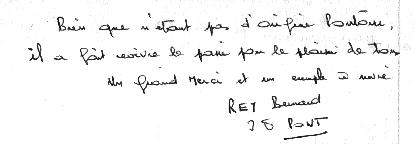 Bien que n'étant pas d'origine Pontoise,
il a fait revivre le passé pour le plaisir de tous
Un Grand Merci et un exemple à suivre
REY Bernard
38 PONT